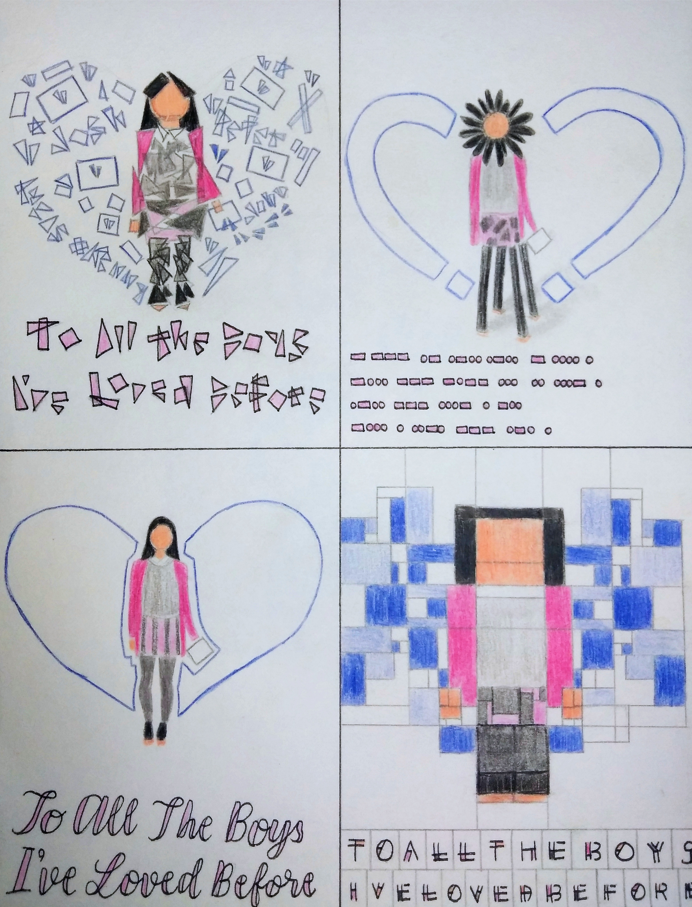 To All the Boys
I've Loved Before
To All The Boys
I've Loved Before
TOALLTHEBOYS
IVELOVEDBEFORE